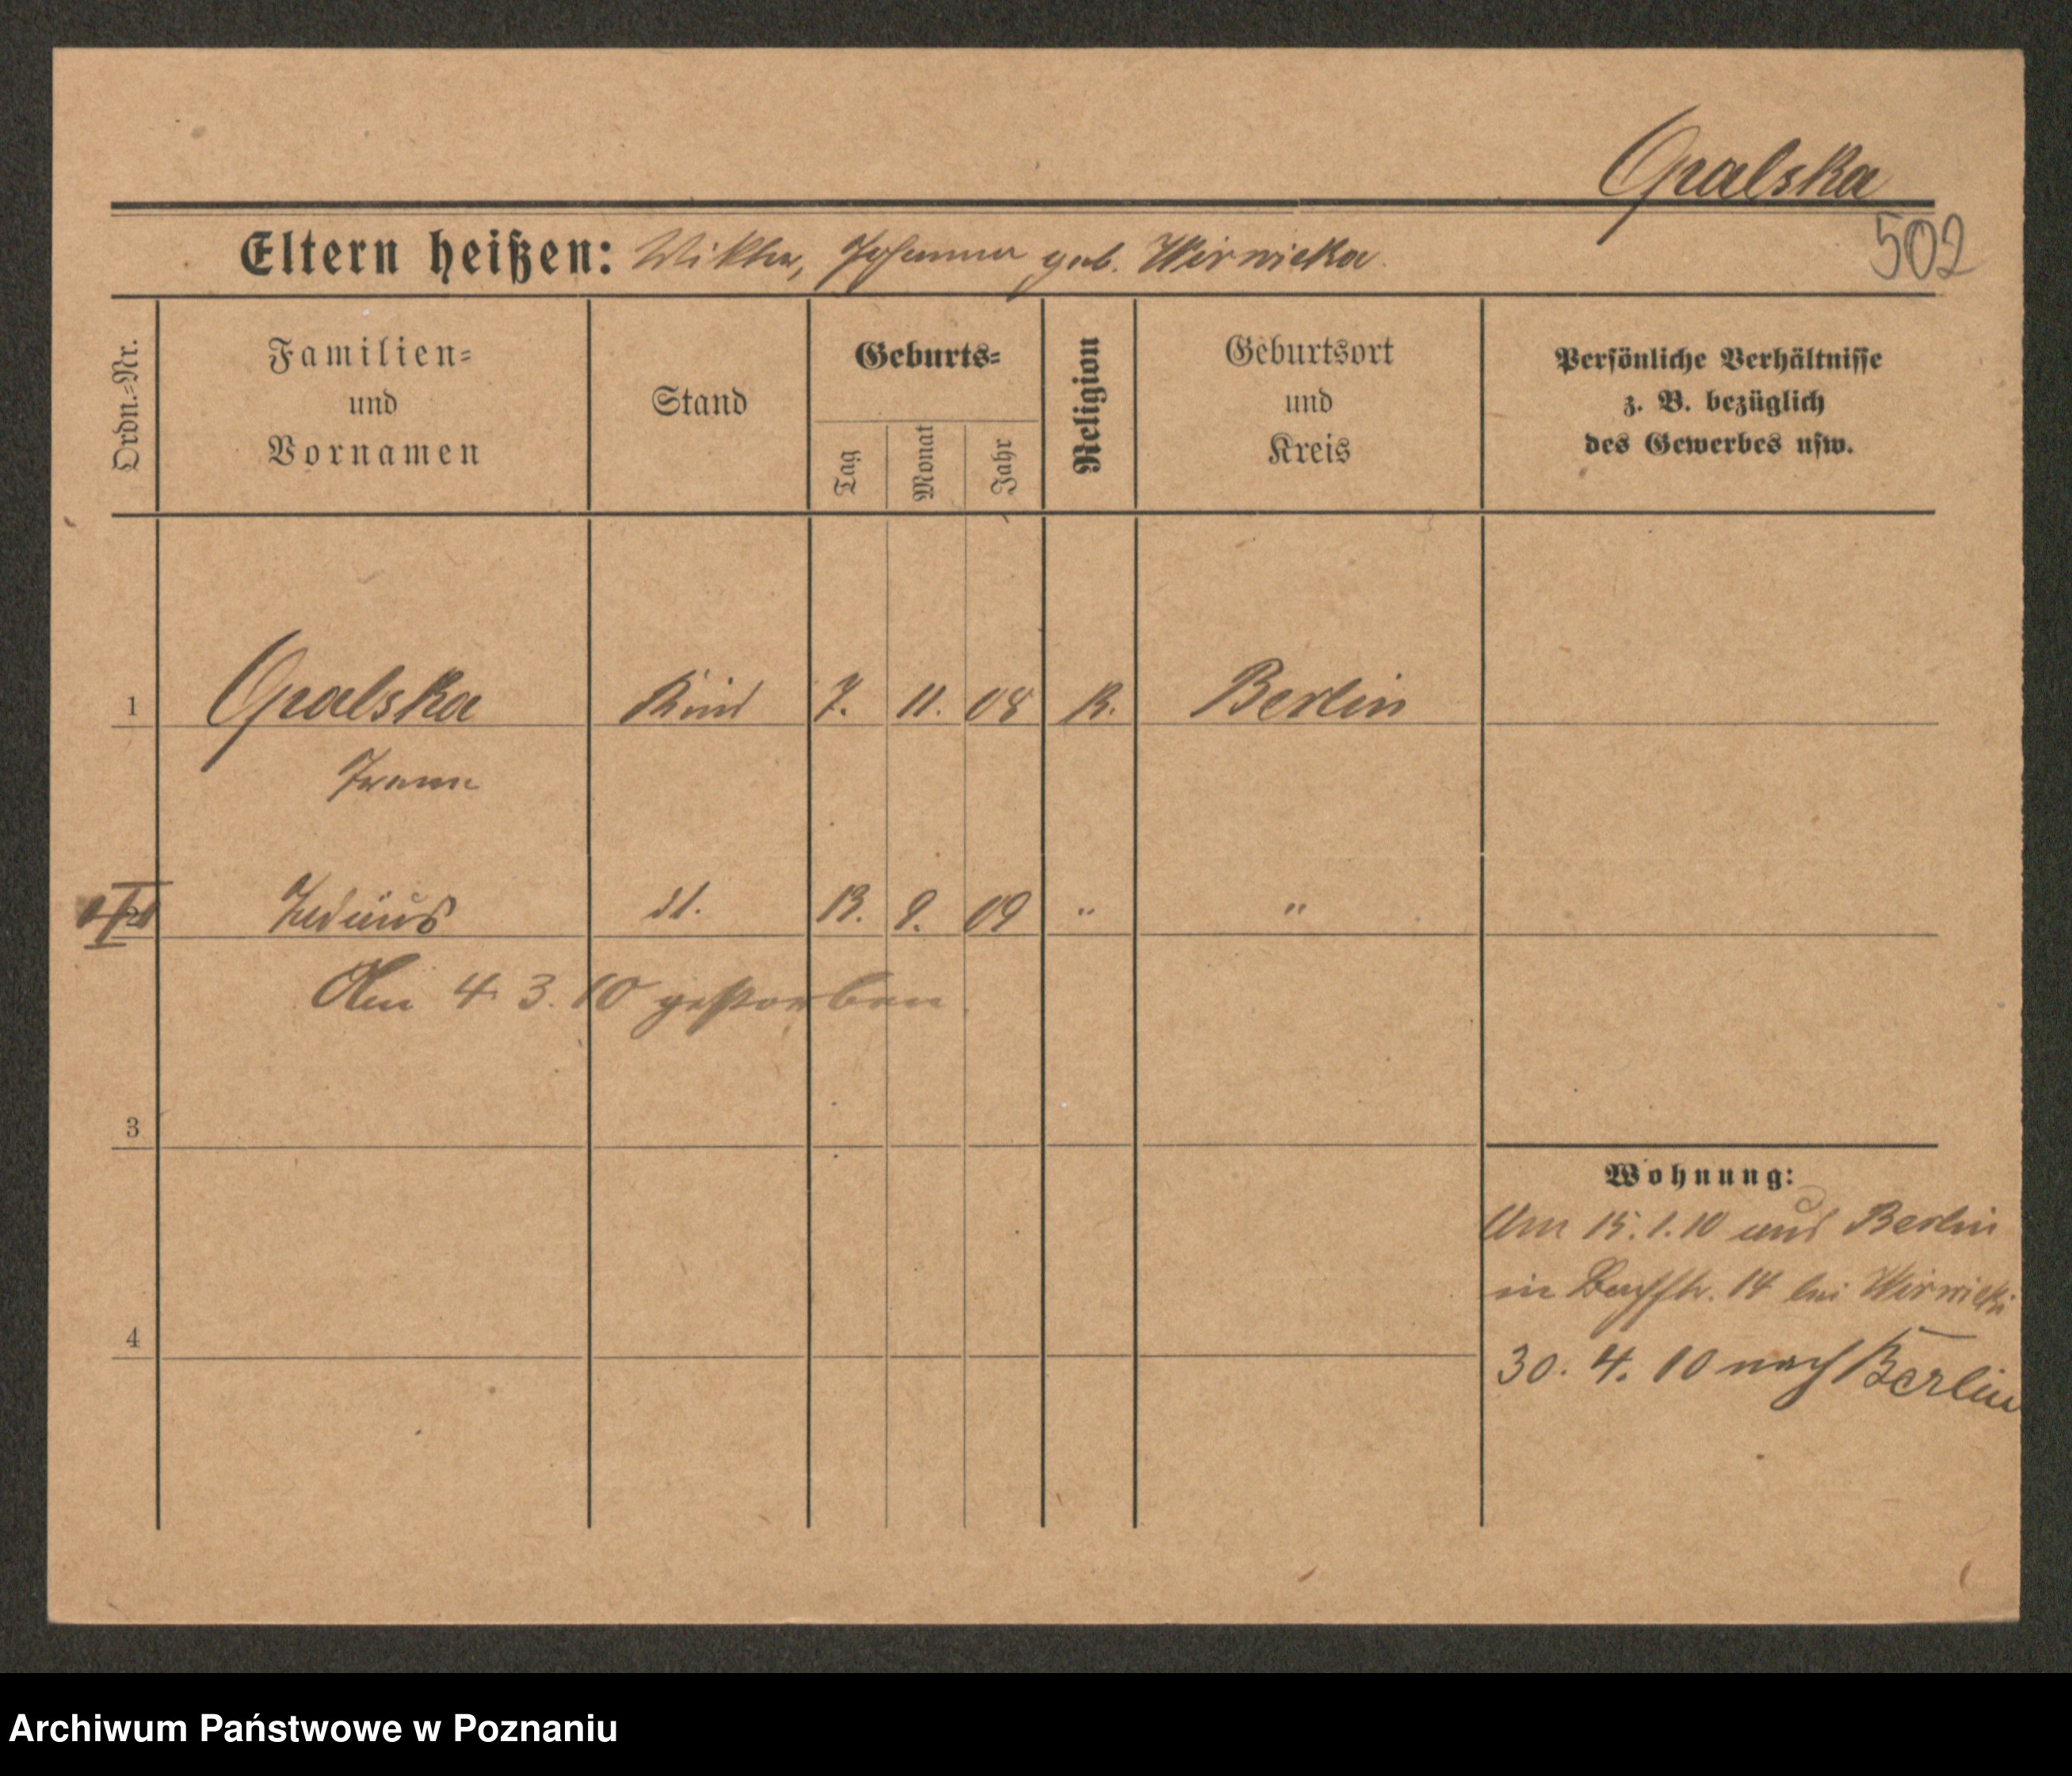 Opalska
502
Eltern heißen: Wiktor, Johanna geb. Wirwicka
Ordn.-Nr.
Familien-
und
Vornamen
Stand
Geburts-
Tag
Monat
Jahr
Religion
Geburtsort
und
Kreis
Persönliche Verhältnisse
z. B. bezüglich
des Gewerbes usw.
1 Opalska Kind 7. 11. 08 K. Berlin
2 dt. 13. 9. 09 " "
Am 4. 3. 10 gestorben
3
4
Wohnung:
Am 15.1.10 aus Berlin
in Bachstr. 14 bei Wirwicki
30. 4. 10 nach Berlin
Archiwum Państwowe w Poznaniu